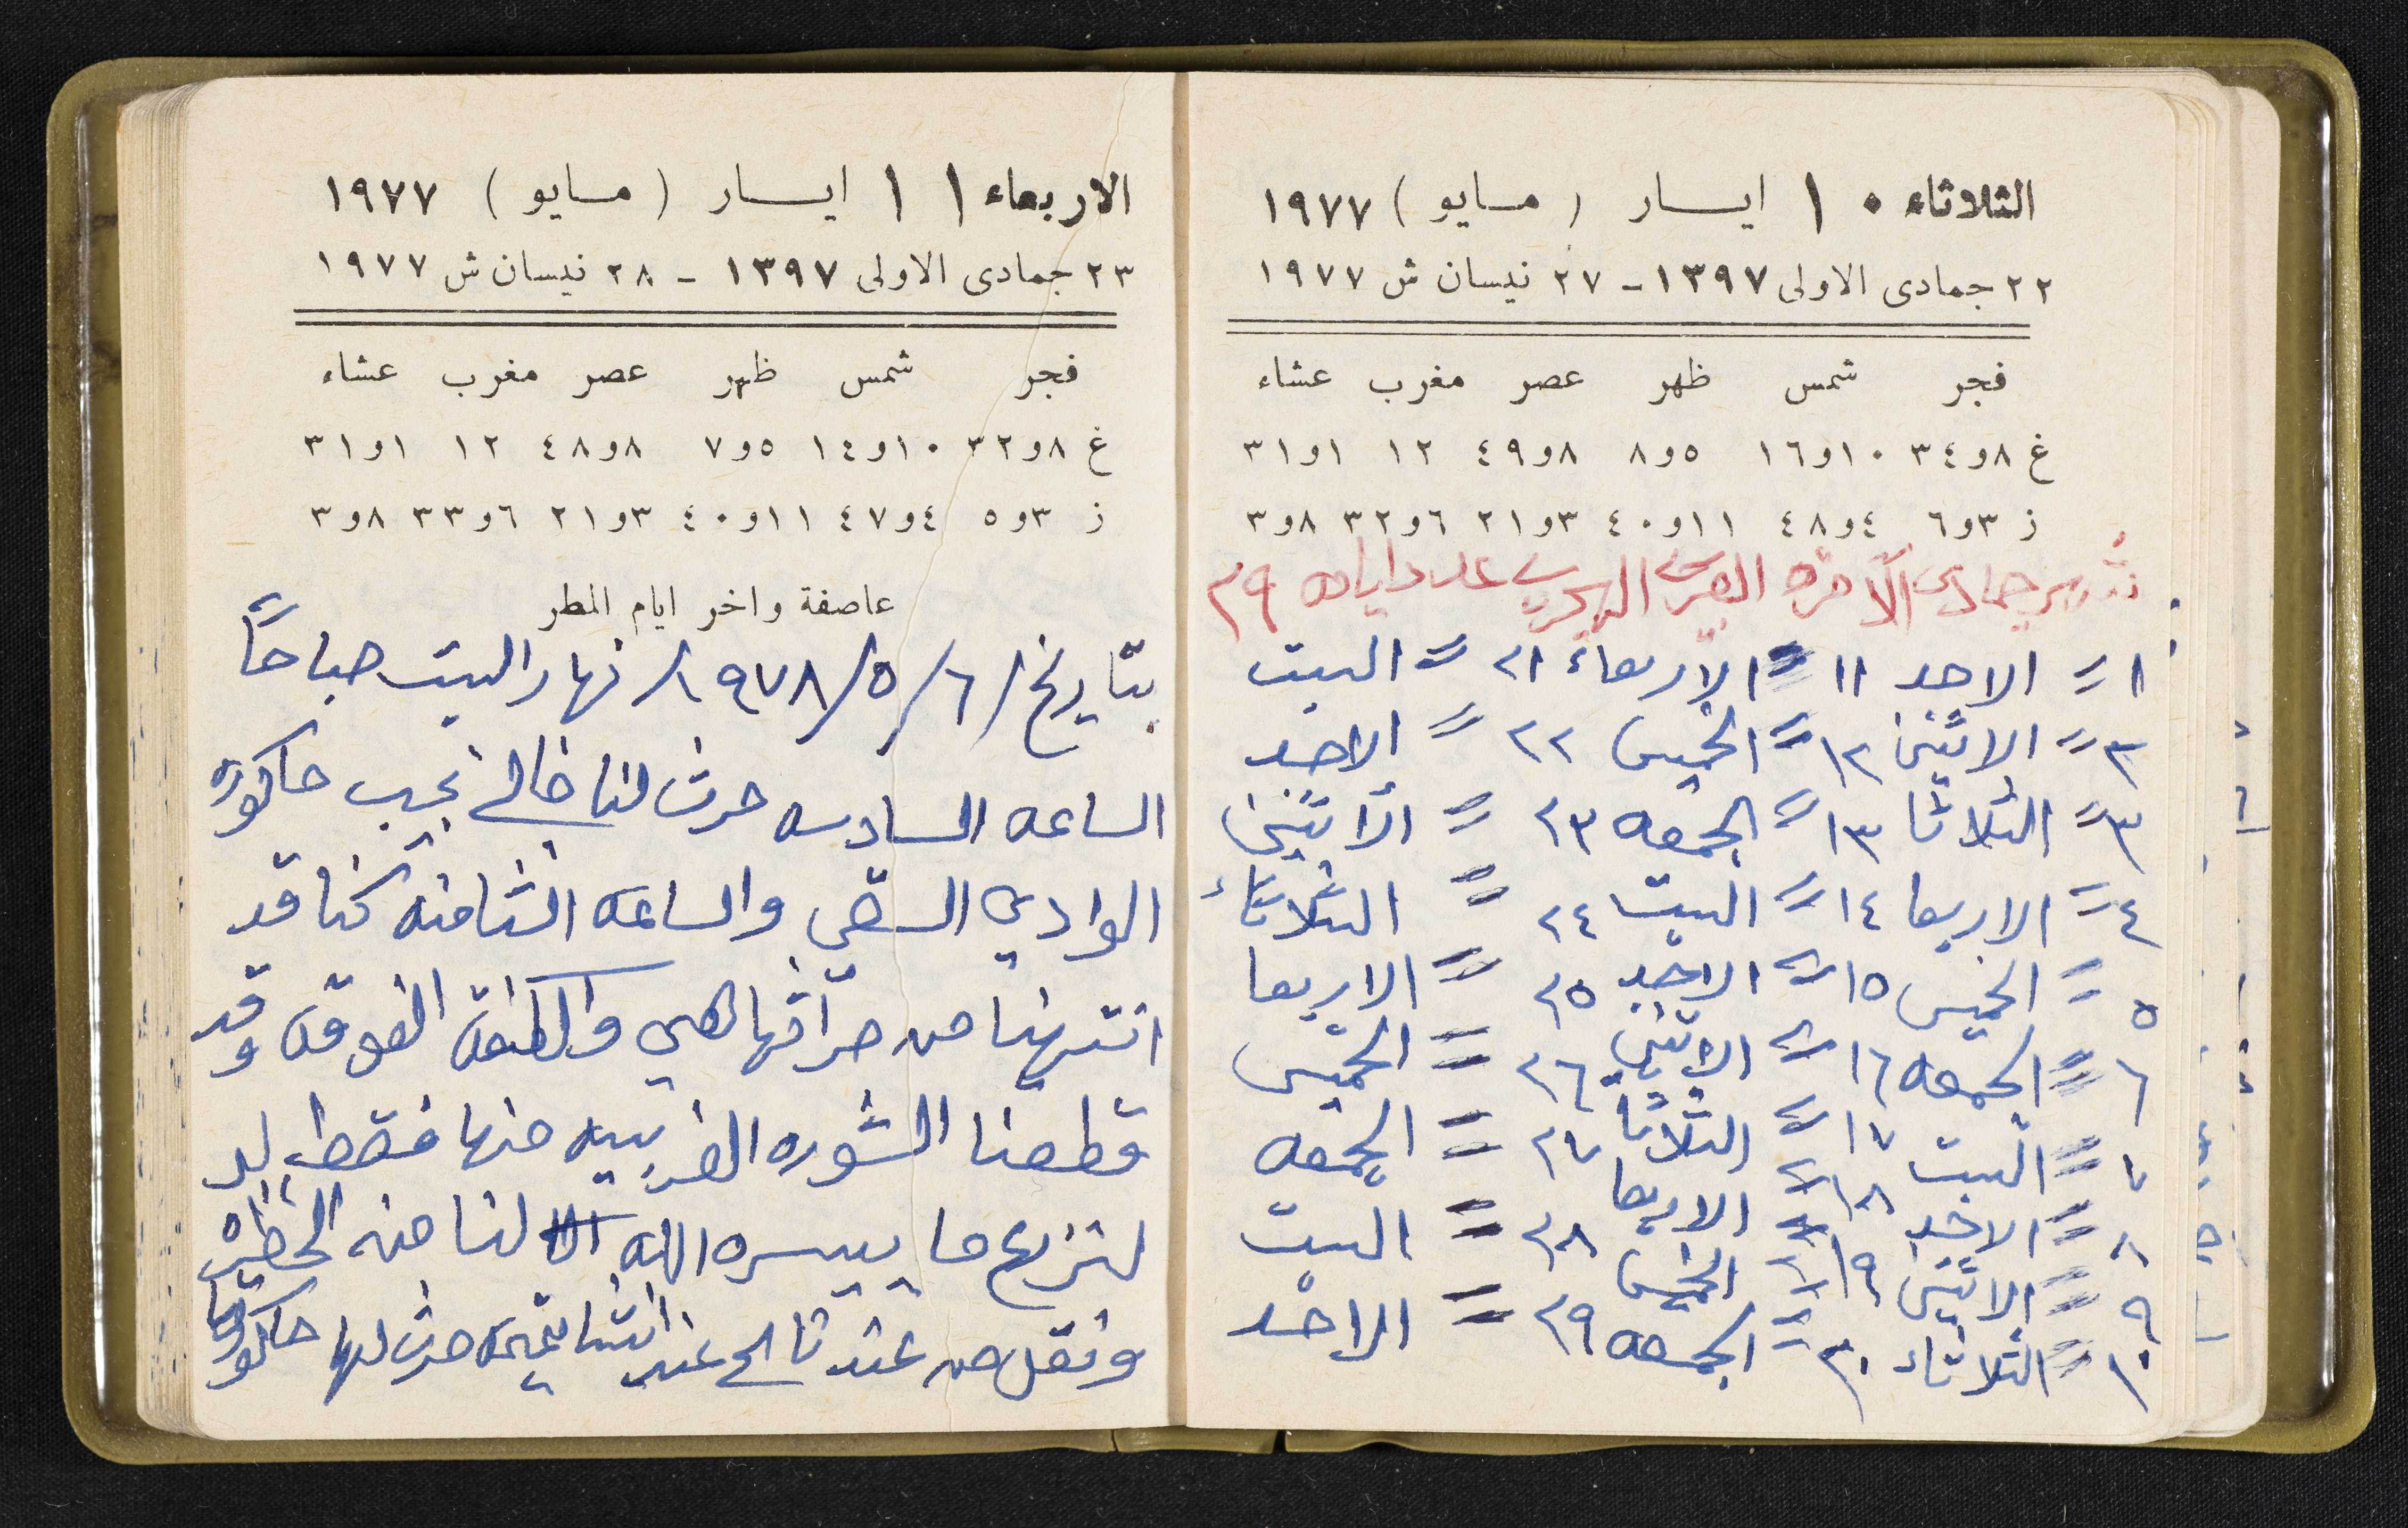 الثلاثاء ١٠ ايسار (مسايو) ١٩٧٧
٢٢ جمادى الاولى ١٣٩٧ - ٢٧ نيسان ش ١٩٧٧
فجر شمس ظهر عصر مغرب عشاء
غ ٨و٣٤ ١٠و١٦ ٥و٨ ٨و٤٩ ١٢ ١و٣١
ز ٣و٦ ٤و٤٨ ١١و٤٠ ٣و٢١ ٦و٣٢ ٨و٣
جمادى الآخره العربي الهجري عدد ايامه ٢٩
١ = الاحد ١١ = الاربعاء ٢١ = السبت
٢ = الاثنين ١٢ = الخميس ٢٢ = الاحد
٣ = الثلاثا ١٣ = الجمعه ٢٣ = الاثنين
٤ = الاربعا ١٤ = السبت ٢٤ = الثلاثاء
٥ = الخميس ١٥ = الاحد ٢٥ = الاربعا
٦ = الجمعه ١٦ = الاثنين ٢٦ = الخميس
٧ = السبت ١٧ = الثلاثا ٢٧ = الجمعه
٨ = الاحد ١٨ = الاربعا ٢٨ = السبت
٩ = الاثنين ١٩ = الخميس ٢٩ = الاحد
١٠ = الثلاثاء ٢٠ = الجمعه
الاربعاء ١١ ايسار (مسايو) ١٩٧٧
٢٣ جمادى الاولى ١٣٩٧ - ٢٨ نيسان ش ١٩٧٧
فجر شمس ظهر عصر مغرب عشاء
غ ٨و٣٢ ١٠و١٤ ٥و٧ ٨و٤٨ ١٢ ١و٣١
ز ٣و٥ ٤و٤٧ ١١و٤٠ ٣و٢١ ٦و٣٣ ٨و٣
عاصفة واخر ايام المطر
بتاريخ ٦/٥/١٩٧٨ نهار السبت صباحاً
الساعه السادسه حرث لنا خالي نجيب حاكورة
الوادي السقي والساعه الثامنه كنا قد
انتهينا من حراثتها هي الفوقه وقد
قطعنا الغربيه منها فقط
لنزرع ما ييسره الله لنا من الخضره
ونقل من عند عند حرث لها حاكورتها